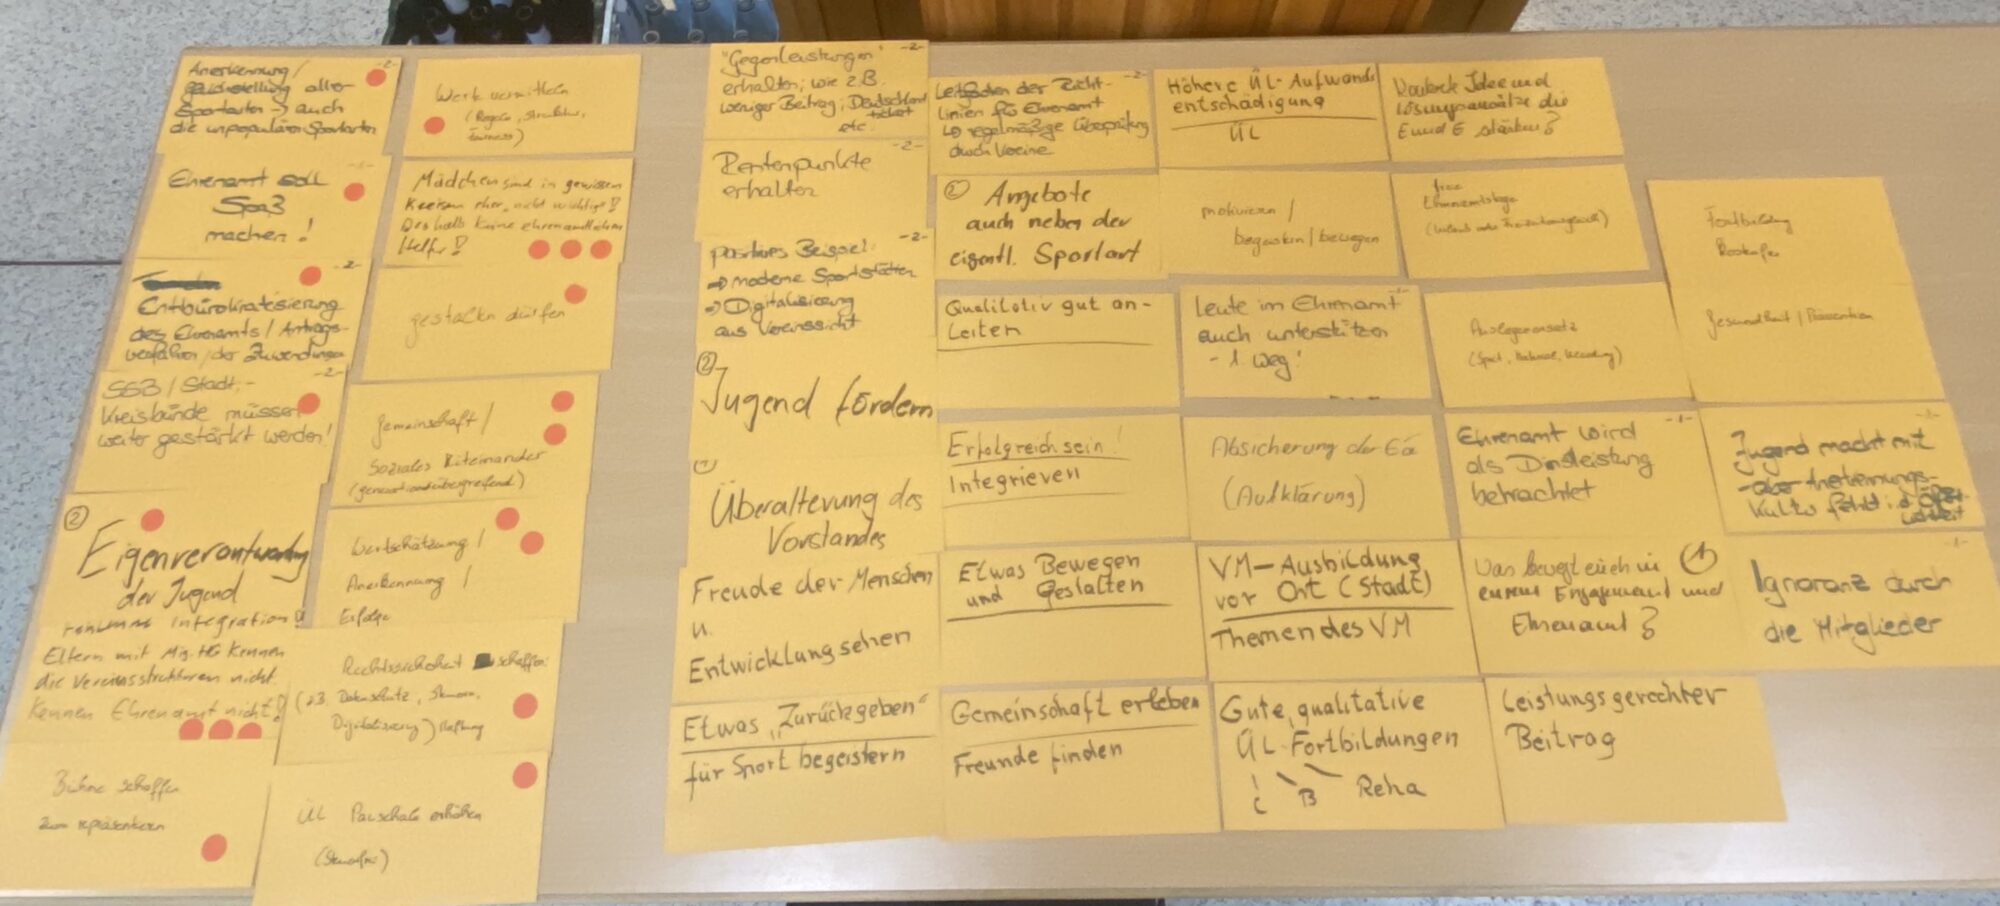 Anerkennung /
Gleichstellung aller
Sportarten → auch
die unpopulären Sportarten
-2-
Ehrenamt soll
Spaß
machen!
-1-
Entbürokratisierung
des Ehrenamts / Antrags-
verfahren / der Zuwendungen
-2-
SSB / Stadt,-
Kreisbünde müssen
weiter gestärkt werden!
-2-
②
Eigenverantwortung
der Jugend
Integration!!
Eltern mit Mig.HG kennen
die Vereinsstrukturen nicht.
Kennen Ehrenamt nicht!
Bühne schaffen
zum repräsentieren
Werte vermitteln
(Regeln, Struktur,
Fairness)
Mädchen sind in gewissen
Kreisen eher „nicht wichtig"!
Deshalb keine ehrenamtlichen
Helfer!
gestalten dürfen
Gemeinschaft /
Soziales Miteinander
(generationsübergreifend)
Wertschätzung /
Anerkennung /
Erfolge
Rechtssicherheit schaffen
(z.B. Datenschutz, Steuern,
Digitalisierung) Haftung
ÜL Pauschale erhöhen
(Steuerfrei)
"Gegenleistungen"
erhalten; wie z.B.
weniger Beitrag; Deutschland
ticket
etc.
-2-
Rentenpunkte
erhalten
-2-
positives Beispiel:
→ moderne Sportstätten
→ Digitalisierung
aus Vereinssicht
-2-
②
Jugend fördern
Überalterung des
Vorstandes
Freude der Menschen
u.
Entwicklung sehen
Etwas „Zurückgeben"
für Sport begeistern
Leitfaden der Richt-
linien für Ehrenamt
↳ regelmäßige Überprüfung
durch Vereine
-2-
② Angebote
auch neben der
eigentl. Sportart
Qualitativ gut an-
Leiten
Erfolgreich sein!
Integrieren
Etwas Bewegen
und Gestalten
Gemeinschaft erleben
Freunde finden
Höhere ÜL-Aufwands
entschädigung
ÜL
motivieren /
begeistern / bewegen
Leute im Ehrenamt
auch unterstützen
- 1. Weg!
-1-
Absicherung der EA
(Aufklärung)
VM-Ausbildung
vor Ort (Stadt)
Themen des VM
Gute, qualitative
ÜL-Fortbildungen
C B Reha
Konkrete Ideen und
Lösungsansätze die
E und E stärken?
freie
Ehrenamtstage
(Urlaub oder Freistellungs
(Sport, Kultur,
Ehrenamt wird
als Dinstleistung
betrachtet
-1-
Was bewegt euch in
eurem Engagement und
Ehrenamt?
①
Leistungsgerechter
Beitrag
Fortbildung
Gesundheit / Prävention
Jugend macht mit
aber Anerkennungs-
kultur fehlt
-1-
Ignoranz durch
die Mitglieder
-1-